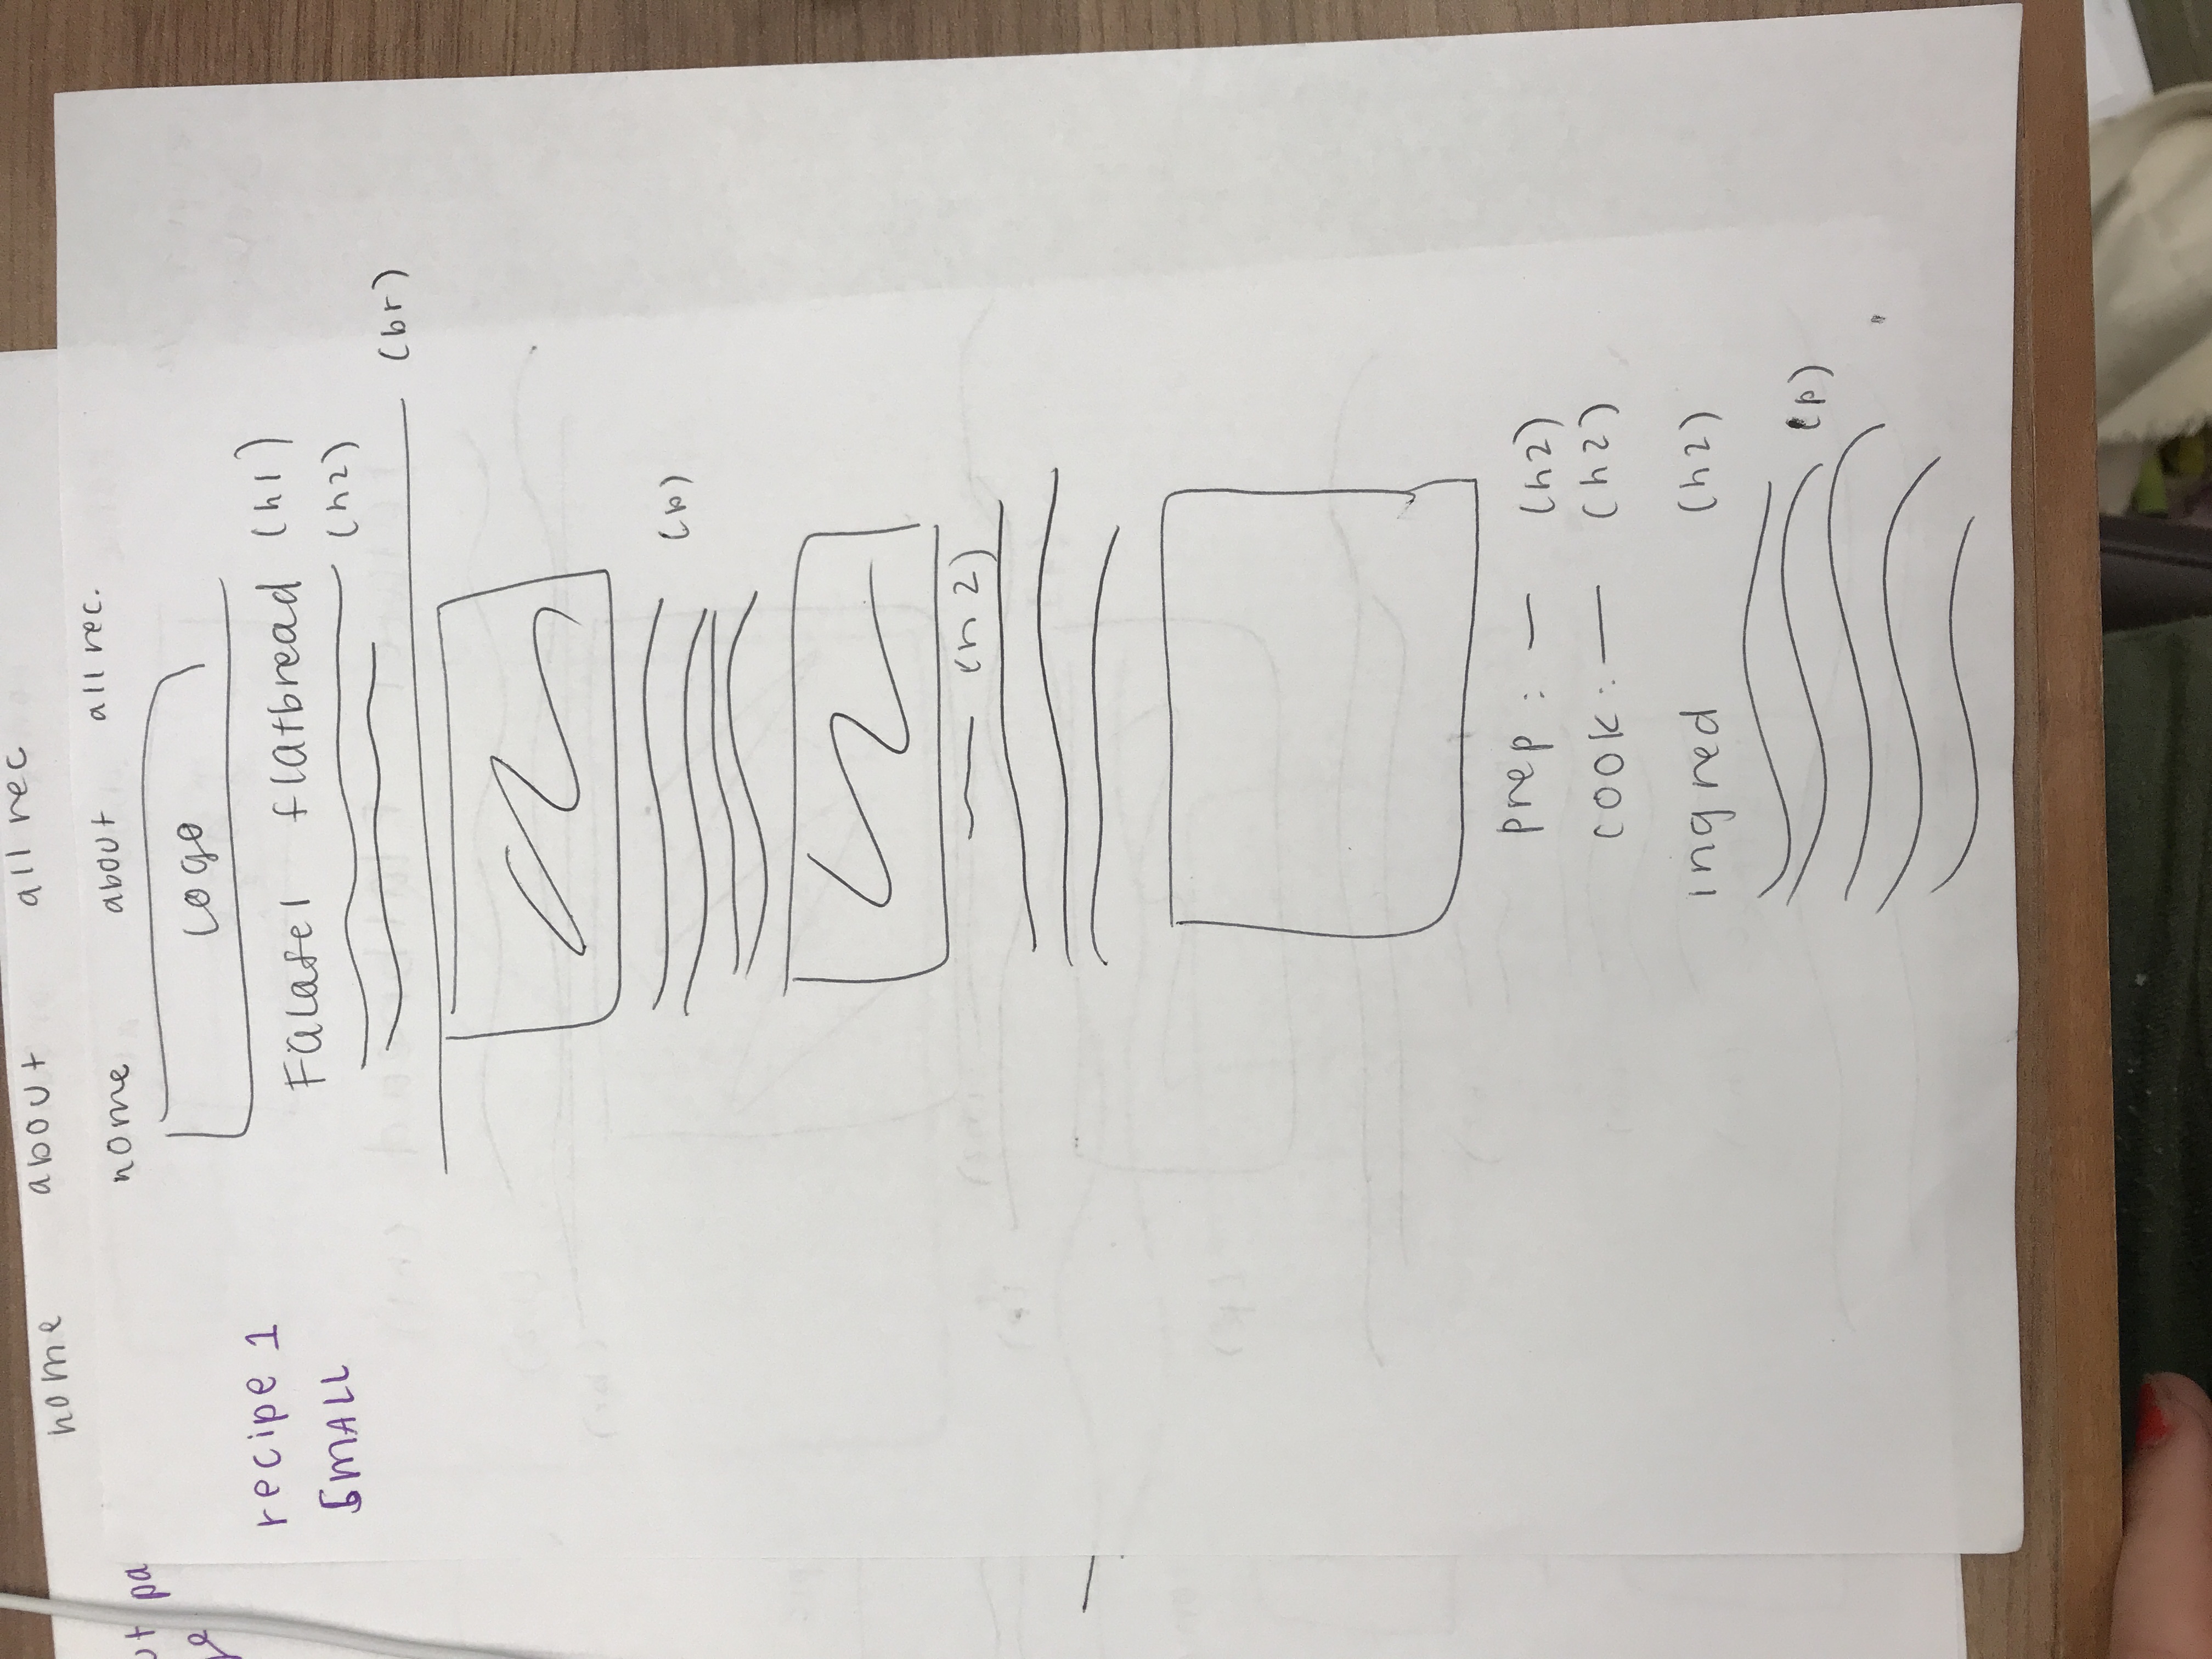 home about all rec
home about all rec.
ut pa
ge
Logo
recipe 1
SMALL
Falafel flatbread (h1)
(h2)
(br)
(p)
(h2)
prep: — (h2)
cook: — (h2)
ingred (h2)
(p)